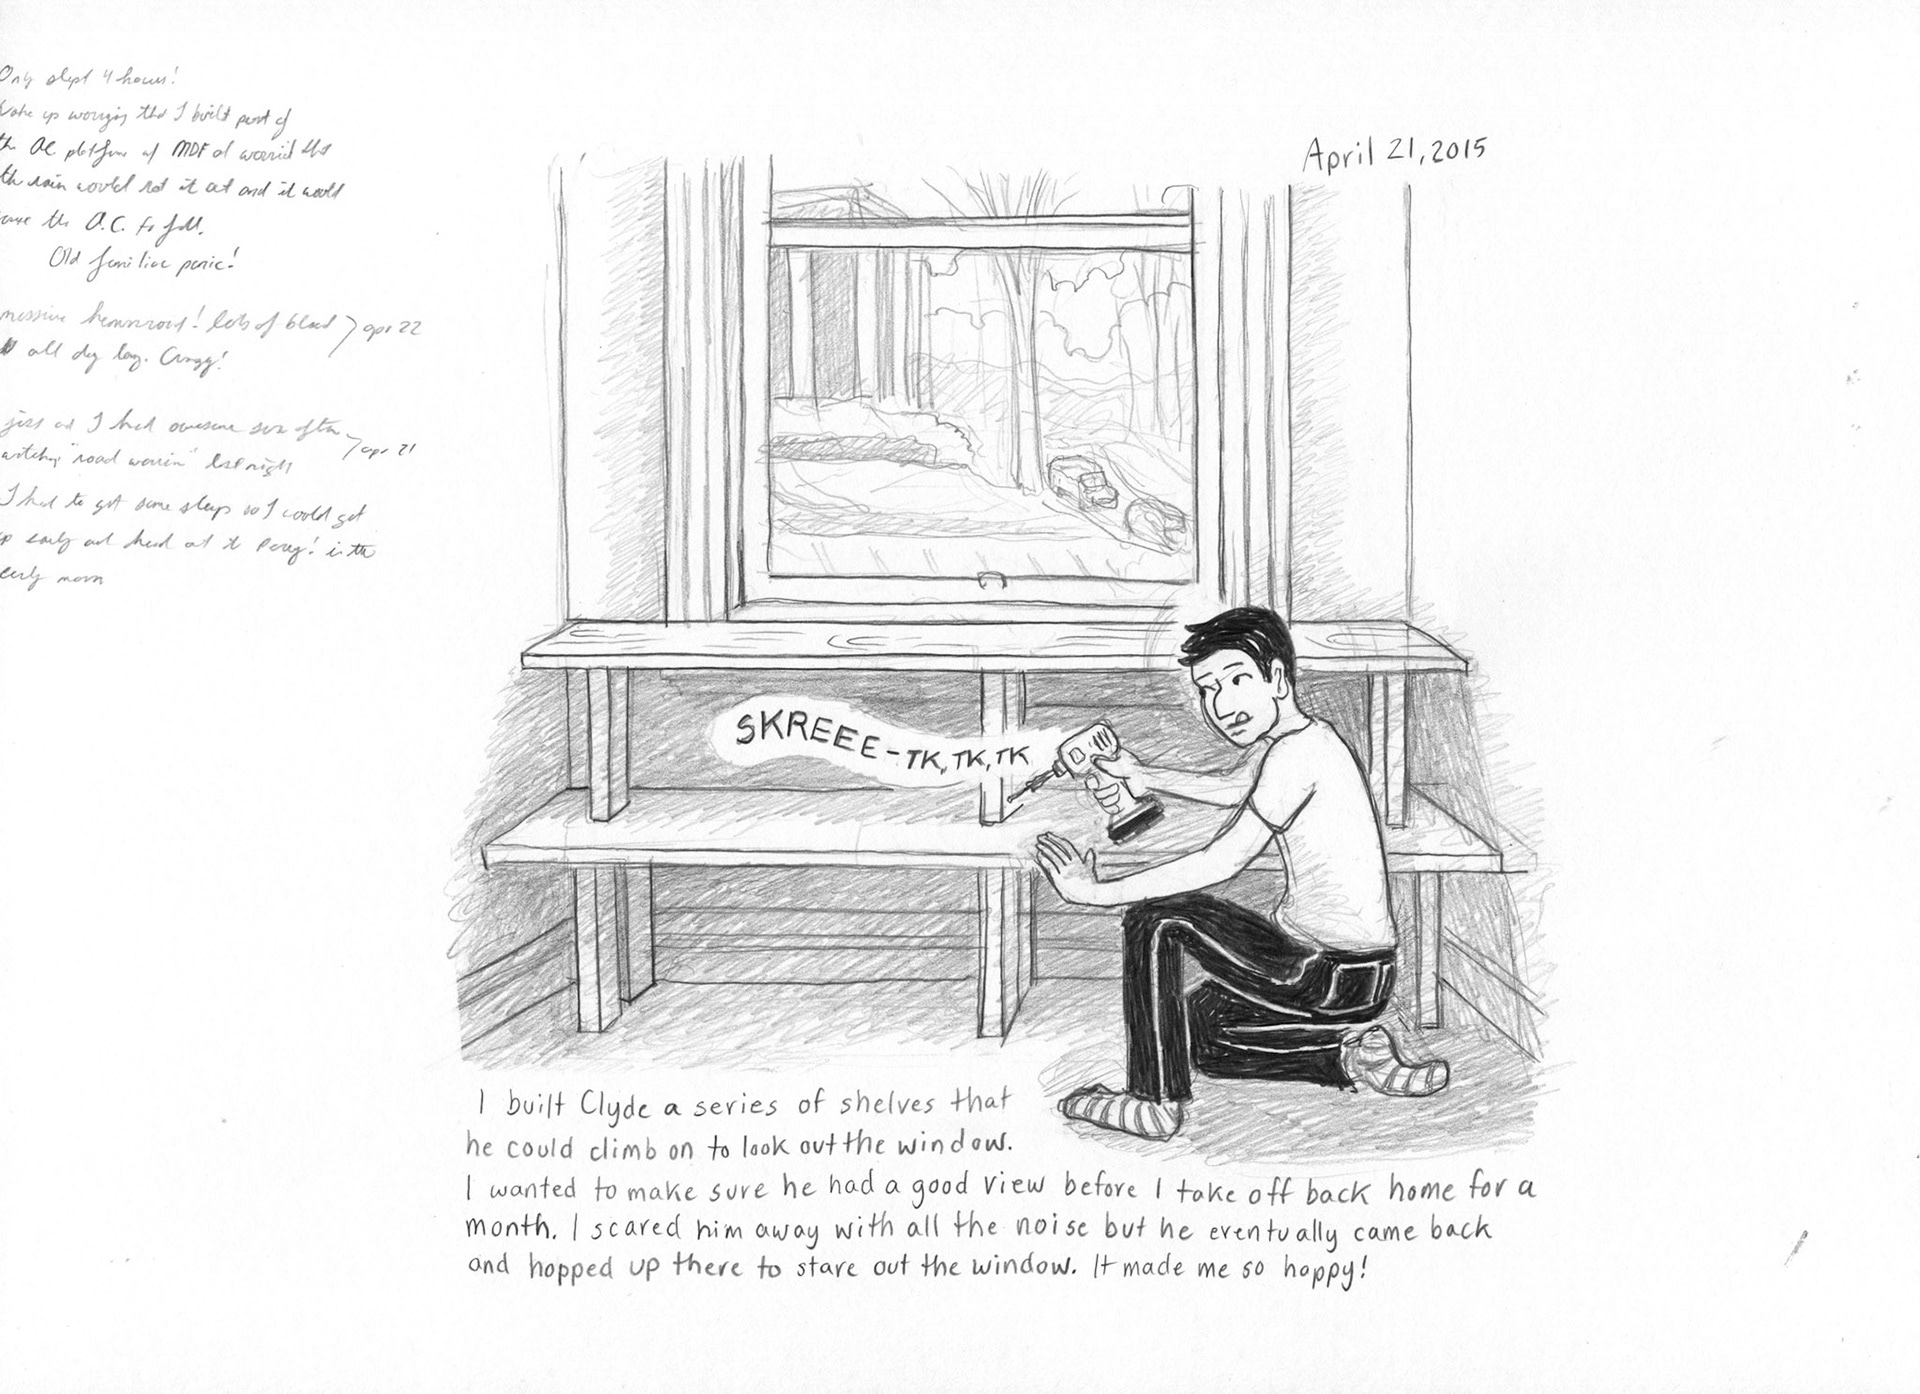 Only slept 4 hours!
Woke up worrying that I built part of
the AC platform of MDF and worried that
the rain would rot it out and it would
cause the A.C. to fall.
Old familiar panic!
massive hemorrhoid! lots of blood
apr 22
all day long. Crazy!
and I had awesome sex after
watching "road warrior" last night
apr 21
I had to get some sleep so I could get
up early and head out to Percy! in the
early morn
April 21, 2015
SKREEE-TK, TK, TK
I built Clyde a series of shelves that
he could climb on to look out the window.
I wanted to make sure he had a good view before I take off back home for a
month. I scared him away with all the noise but he eventually came back
and hopped up there to stare out the window. It made me so happy!